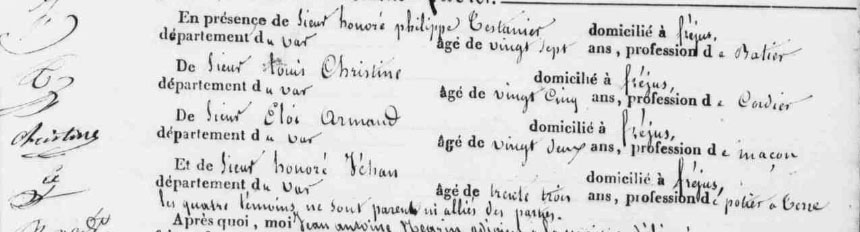 En présence de Sieur honoré philippe Testanier domicilié à fréjus,
département du var âgé de vingt sept ans, profession de Batier
De Sieur Louis Christine domicilié à fréjus,
département du var âgé de vingt Cinq ans, profession de Cordier
De Sieur Eloi Armand domicilié à fréjus,
Christine
département du var âgé de vingt deux ans, profession de maçon
Et de Sieur honoré Véhan domicilié à fréjus,
département du var âgé de trente trois ans, profession de potier a terre
les quatre témoins ne sont parents ni alliés des parties.
Après quoi, moi Jean antoine